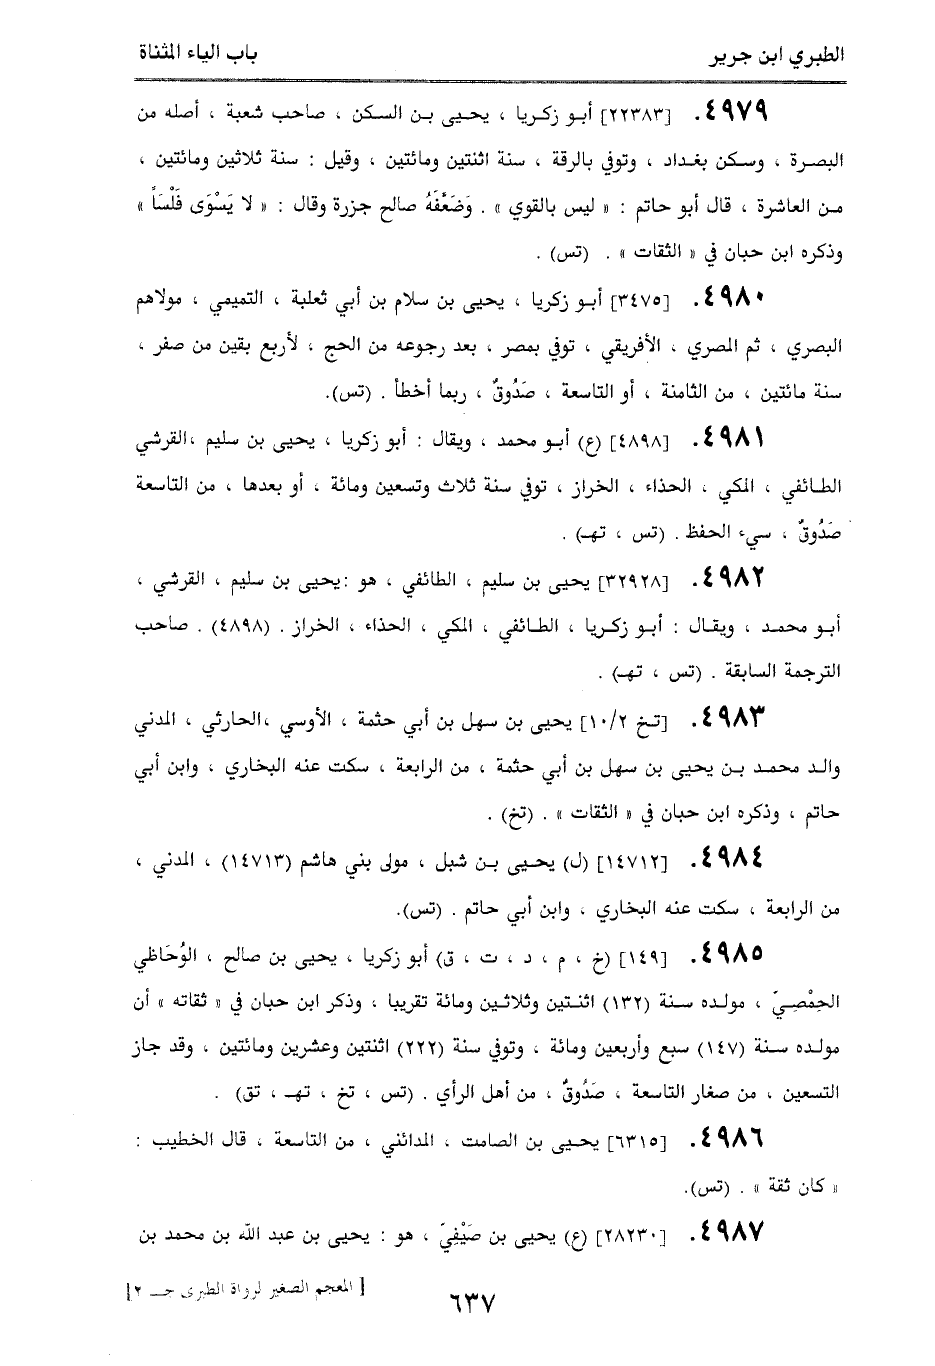 الطبري ابن جرير
باب الياء المثناة
٤٩٧٩. [٢٢٣٨٣] أبو زكريا ، يحيى بن السكن ، صاحب شعبة ، أصله من
البصرة ، وسكن بغداد ، وتوفي بالرقة ، سنة اثنتين ومائتين ، وقيل : سنة ثلاثين ومائتين ،
من العاشرة ، قال أبو حاتم : « ليس بالقوي » . وَضَعَّفَهُ صالح جزرة وقال : « لا يَسْوَى فَلْسَاً »
وذكره ابن حبان في « الثقات » . (تس) .
٤٩٨٠. [٣٤٧٥] أبو زكريا ، يحيى بن سلام بن أبي ثعلبة ، التميمي ، مولاهم
البصري ، ثم المصري ، الأفريقي ، توفي بمصر ، بعد رجوعه من الحج ، لأربع بقين من صفر ،
سنة مائتين ، من الثامنة ، أو التاسعة ، صَدُوقٌ ، ربما أخطأ . (تس).
٤٩٨١. [٤٨٩٨] (ع) أبو محمد ، ويقال : أبو زكريا ، يحيى بن سليم ،القرشي
الطائفي ، المكي ، الحذاء ، الخراز ، توفي سنة ثلاث وتسعين ومائة ، أو بعدها ، من التاسعة
صَدُوقٌ ، سيء الحفظ . (تس ، تهـ) .
٤٩٨٢. [٣٢٩٢٨] يحيى بن سليم ، الطائفي ، هو :يحيى بن سليم ، القرشي ،
أبو محمد ، ويقال : أبو زكريا ، الطائفي ، المكي ، الحذاء ، الخراز . (٤٨٩٨) . صاحب
الترجمة السابقة . (تس ، تهـ) .
٤٩٨٣. [تخ ١٠/٢] يحيى بن سهل بن أبي حثمة ، الأوسي ،الحارثي ، المدني
والد محمد بن يحيى بن سهل بن أبي حثمة ، من الرابعة ، سكت عنه البخاري ، وابن أبي
حاتم ، وذكره ابن حبان في « الثقات » . (تخ) .
٤٩٨٤. [١٤٧١٢] (ل) يحيى بن شبل ، مولى بني هاشم (١٤٧١٣) ، المدني ،
من الرابعة ، سكت عنه البخاري ، وابن أبي حاتم . (تس).
٤٩٨٥. [١٤٩] (خ ، م ، د ، ت ، ق) أبو زكريا ، يحيى بن صالح ، الوُحَاظي
الحِمْصِيّ ، مولده سنة (١٣٢) اثنتين وثلاثين ومائة تقريبا ، وذكر ابن حبان في « ثقاته » أن
مولده سنة (١٤٧) سبع وأربعين ومائة ، وتوفي سنة (٢٢٢) اثنتين وعشرين ومائتين ، وقد جاز
التسعين ، من صغار التاسعة ، صَدُوقٌ ، من أهل الرأي . (تس ، تخ ، تهـ ، تق) .
٤٩٨٦. [٦٣١٥] يحيى بن الصامت ، المدائني ، من التاسعة ، قال الخطيب :
« كان ثقة » . (تس).
٤٩٨٧. [٢٨٢٣٠] (ع) يحيى بن صَيْفِيّ ، هو : يحيى بن عبد الله بن محمد بن
[ المعجم الصغير لرواة الطبري جـ ٢]
٦٣٧